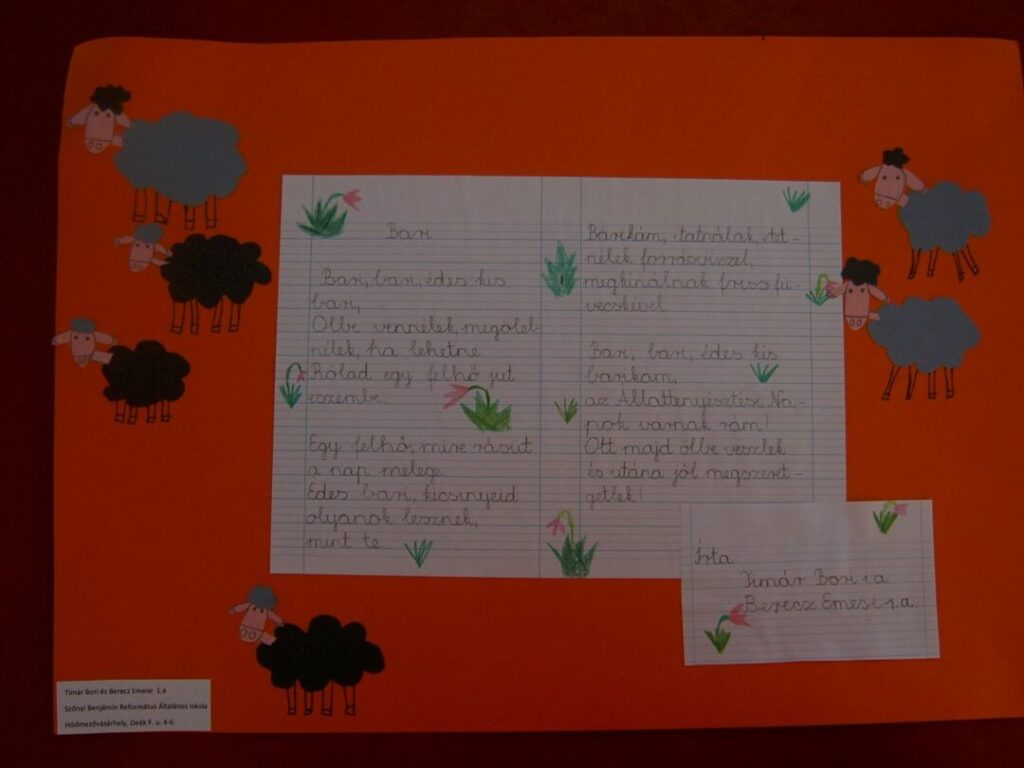 Bari
Bari, bari, édes kis
bari,
Ölbe vennélek, megölel
nélek, ha lehetne.
Rólad egy felhő jut
eszembe.
Egy felhő, mire rásüt
a nap melege.
Édes bari, kicsinyeid
olyanok lesznek,
mint te.
Barikám, itatnálak, etet-
nélek forrásvízzel,
megkínálnak friss fü-
vecskével.
Bari, bari, édes kis
barikám,
az Állattenyésztési Na-
pok várnak rám!
Ott majd ölbe veszlek
és utána jól megszeret-
getlek!
Írta
Timár Bori 1.a
Berecz Emese 1.a.
Timár Bori és Berecz Emese 1.a
Szőnyi Benjámin Református Általános Iskola
Hódmezővásárhely, Deák F. u. 4-6.